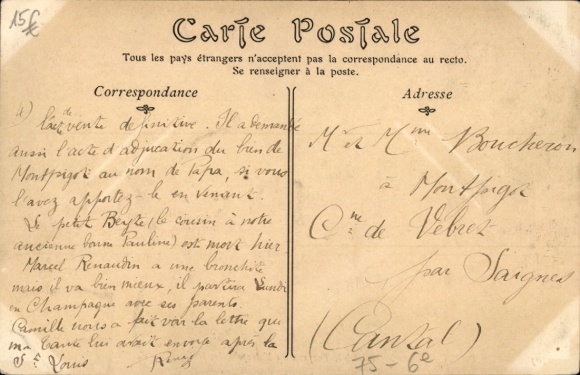 15 €
Carte Postale
Tous les pays étrangers n'acceptent pas la correspondance au recto.
Se renseigner à la poste.
Correspondance
4) l'act de vente definitive. Il a demandé
aussi l'acte d'adjucation du bien de
Montpigot au nom de Papa, si vous
l'avez apportez-le en venant.
Le petit (le cousin à notre
ancienne bonne Pauline) est mort hier
Marcel Renaudin a une bronchite
mais il va bien mieux, il partira Lundi
en Champagne avec ses parents.
Camille nous a fait voir la lettre que
ma tante lui avait envoyé après la
St Louis
Adresse
Mr et Mme Boucheron
à Montpigot
Cne de Vebret
par Saignes
(Cantal)
75-6e